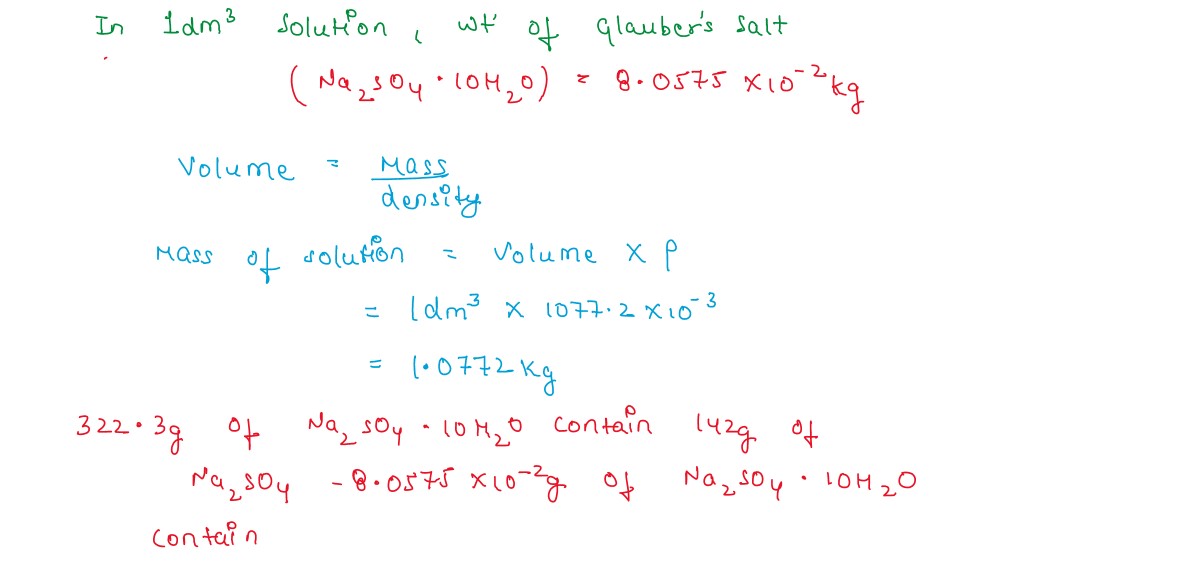 In 1dm³ solution, wt of Glauber's salt
(Na₂SO₄·10H₂O) = 8.0575 ×10⁻² kg
Volume = Mass / density
Mass of solution = Volume × ρ
= 1dm³ × 1077.2 ×10⁻³
= 1.0772 kg
322.3g of Na₂SO₄·10H₂O contain 142g of
Na₂SO₄ - 8.0575 ×10⁻²g of Na₂SO₄·10H₂O
contain